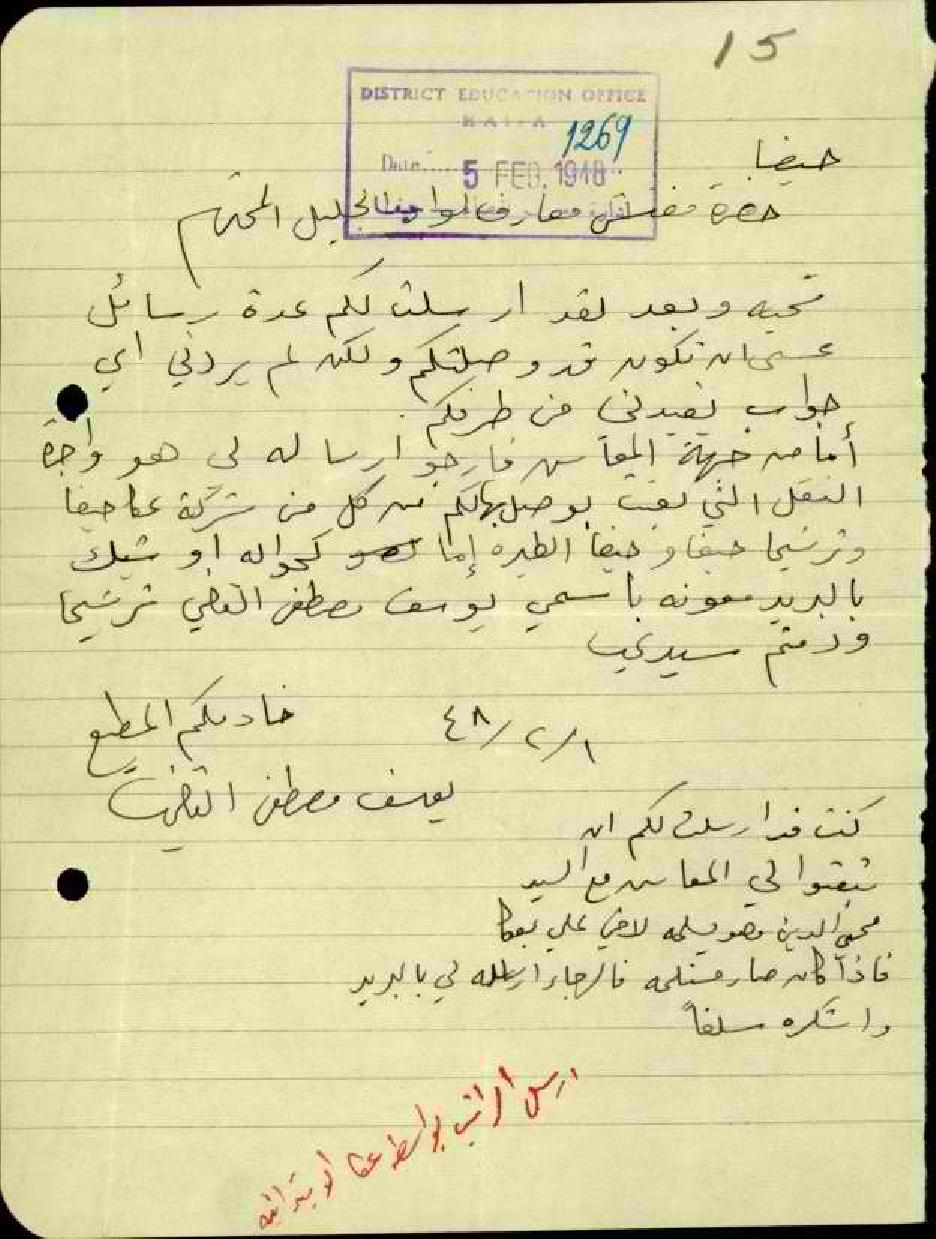 15
DISTRICT EDUCATION OFFICE
HAIFA
1269
Date..... 5 FEB. 1948
حيفا
حضرة مفتش معارف لواء الجليل المحترم
تحيه وبعد لقد ارسلت لكم عدة رسائل
عسى ان تكون قد وصلتكم ولكن لم يردني اي
جواب يفيدني من طرفكم
أما من جهة المعاش فارجو ارساله لي هو واجرة
النقل التي بوصلها لكم من كل من شركة عكا حيفا
وترشيحا حيفا و حيفا الطيره إما كحواله او شيك
بالبريد معونه باسمي يوسف مصطفى القاضي ترشيحا
ودمتم سيدي
خادمكم المطيع
٤٨/٢/١
يوسف مصطفى القاضي
كنت قد ارسلت لكم ان
تبعثوا لي المعاش مع السيد
محي الدين وهو يسلمه لاخي علي بعكا
فاذا كان صار مستلمه فالرجاء ارساله لي بالبريد
واشكره سلفاً
ارسل الراتب بواسطة عكا